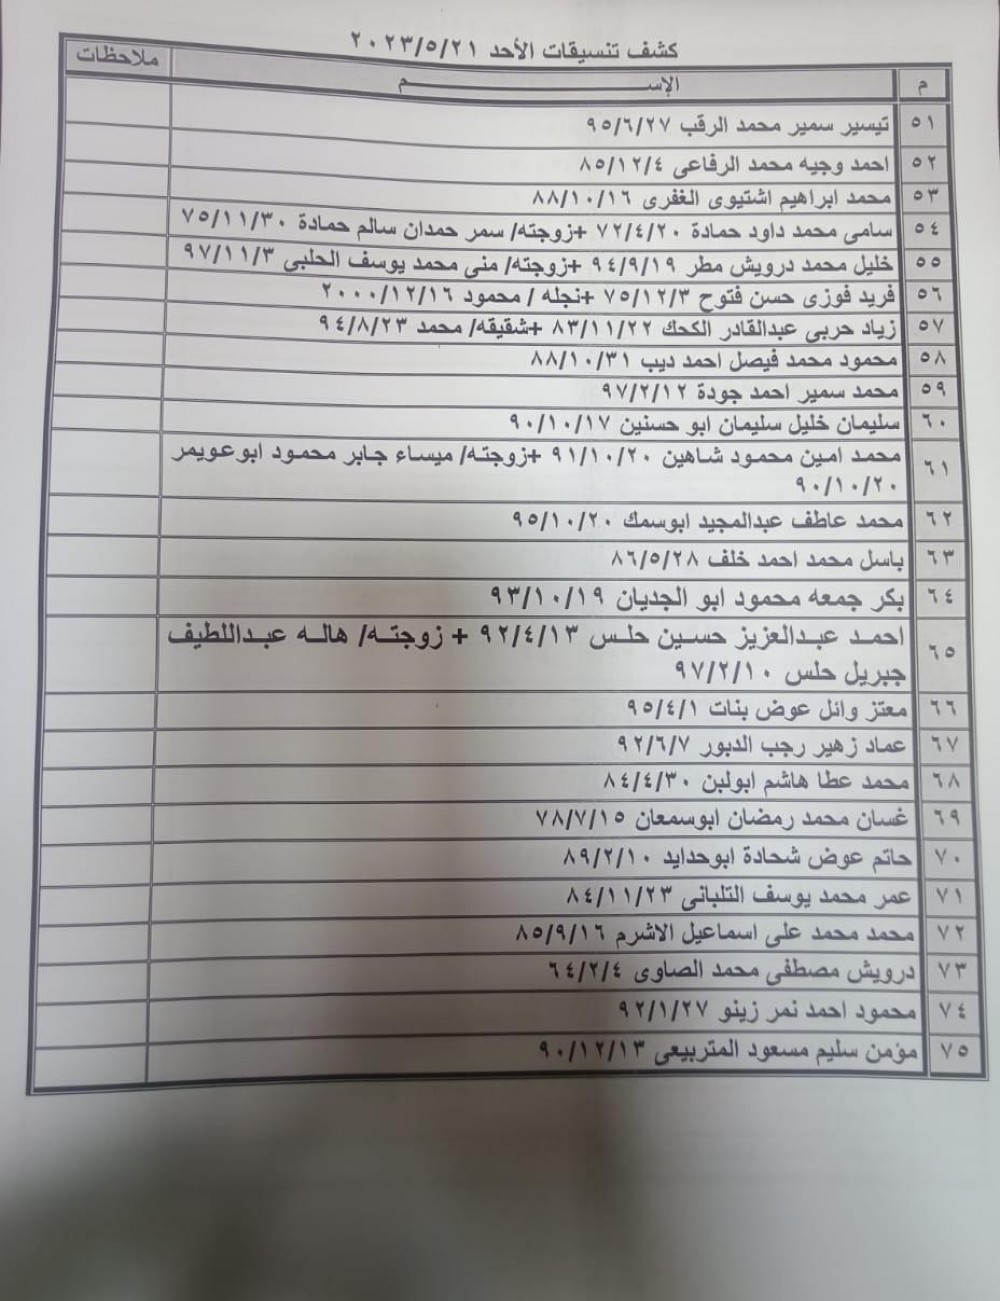 كشف تنسيقات الأحد ٢٠٢٣/٥/٢١
م الإســـــم ملاحظات
٥١ تيسير سمير محمد الرقب ٩٥/٦/٢٧
٥٢ احمد وجيه محمد الرفاعى ٨٥/١٢/٤
٥٣ محمد ابراهيم اشتيوى الغفرى ٨٨/١٠/١٦
٥٤ سامى محمد داود حمادة ٧٢/٤/٢٠ +زوجته/ سمر حمدان سالم حمادة ٧٥/١١/٣٠
٥٥ خليل محمد درويش مطر ٩٤/٩/١٩ +زوجته/ منى محمد يوسف الحلبى ٩٧/١١/٣
٥٦ فريد فوزى حسن فتوح ٧٥/١٢/٣ +نجله / محمود ٢٠٠٠/١٢/١٦
٥٧ زياد حربى عبدالقادر الكحك ٨٣/١١/٢٢ +شقيقه/ محمد ٩٤/٨/٢٣
٥٨ محمود محمد فيصل احمد ديب ٨٨/١٠/٣١
٥٩ محمد سمير احمد جودة ٩٧/٢/١٢
٦٠ سليمان خليل سليمان ابو حسنين ٩٠/١٠/١٧
٦١ محمد امين محمود شاهين ٩١/١٠/٢٠ +زوجته/ ميساء جابر محمود ابوعويمر
٩٠/١٠/٢٠
٦٢ محمد عاطف عبدالمجيد ابوسمك ٩٥/١٠/٢٠
٦٣ باسل محمد احمد خلف ٨٦/٥/٢٨
٦٤ بكر جمعه محمود ابو الجديان ٩٣/١٠/١٩
٦٥ احمد عبدالعزيز حسين حلس ٩٢/٤/١٣ + زوجته/ هاله عبداللطيف
جبريل حلس ٩٧/٢/١٠
٦٦ معتز وائل عوض بنات ٩٥/٤/١
٦٧ عماد زهير رجب الدبور ٩٢/٦/٧
٦٨ محمد عطا هاشم ابولبن ٨٤/٤/٣٠
٦٩ غسان محمد رمضان ابوسمعان ٧٨/٧/١٥
٧٠ حاتم عوض شحادة ابوحدايد ٨٩/٢/١٠
٧١ عمر محمد يوسف التلبانى ٨٤/١١/٢٣
٧٢ محمد محمد على اسماعيل الاشرم ٨٥/٩/١٦
٧٣ درويش مصطفى محمد الصاوى ٦٤/٢/٤
٧٤ محمود احمد نمر زينو ٩٢/١/٢٧
٧٥ مؤمن سليم مسعود المتربيعى ٩٠/١٢/١٣